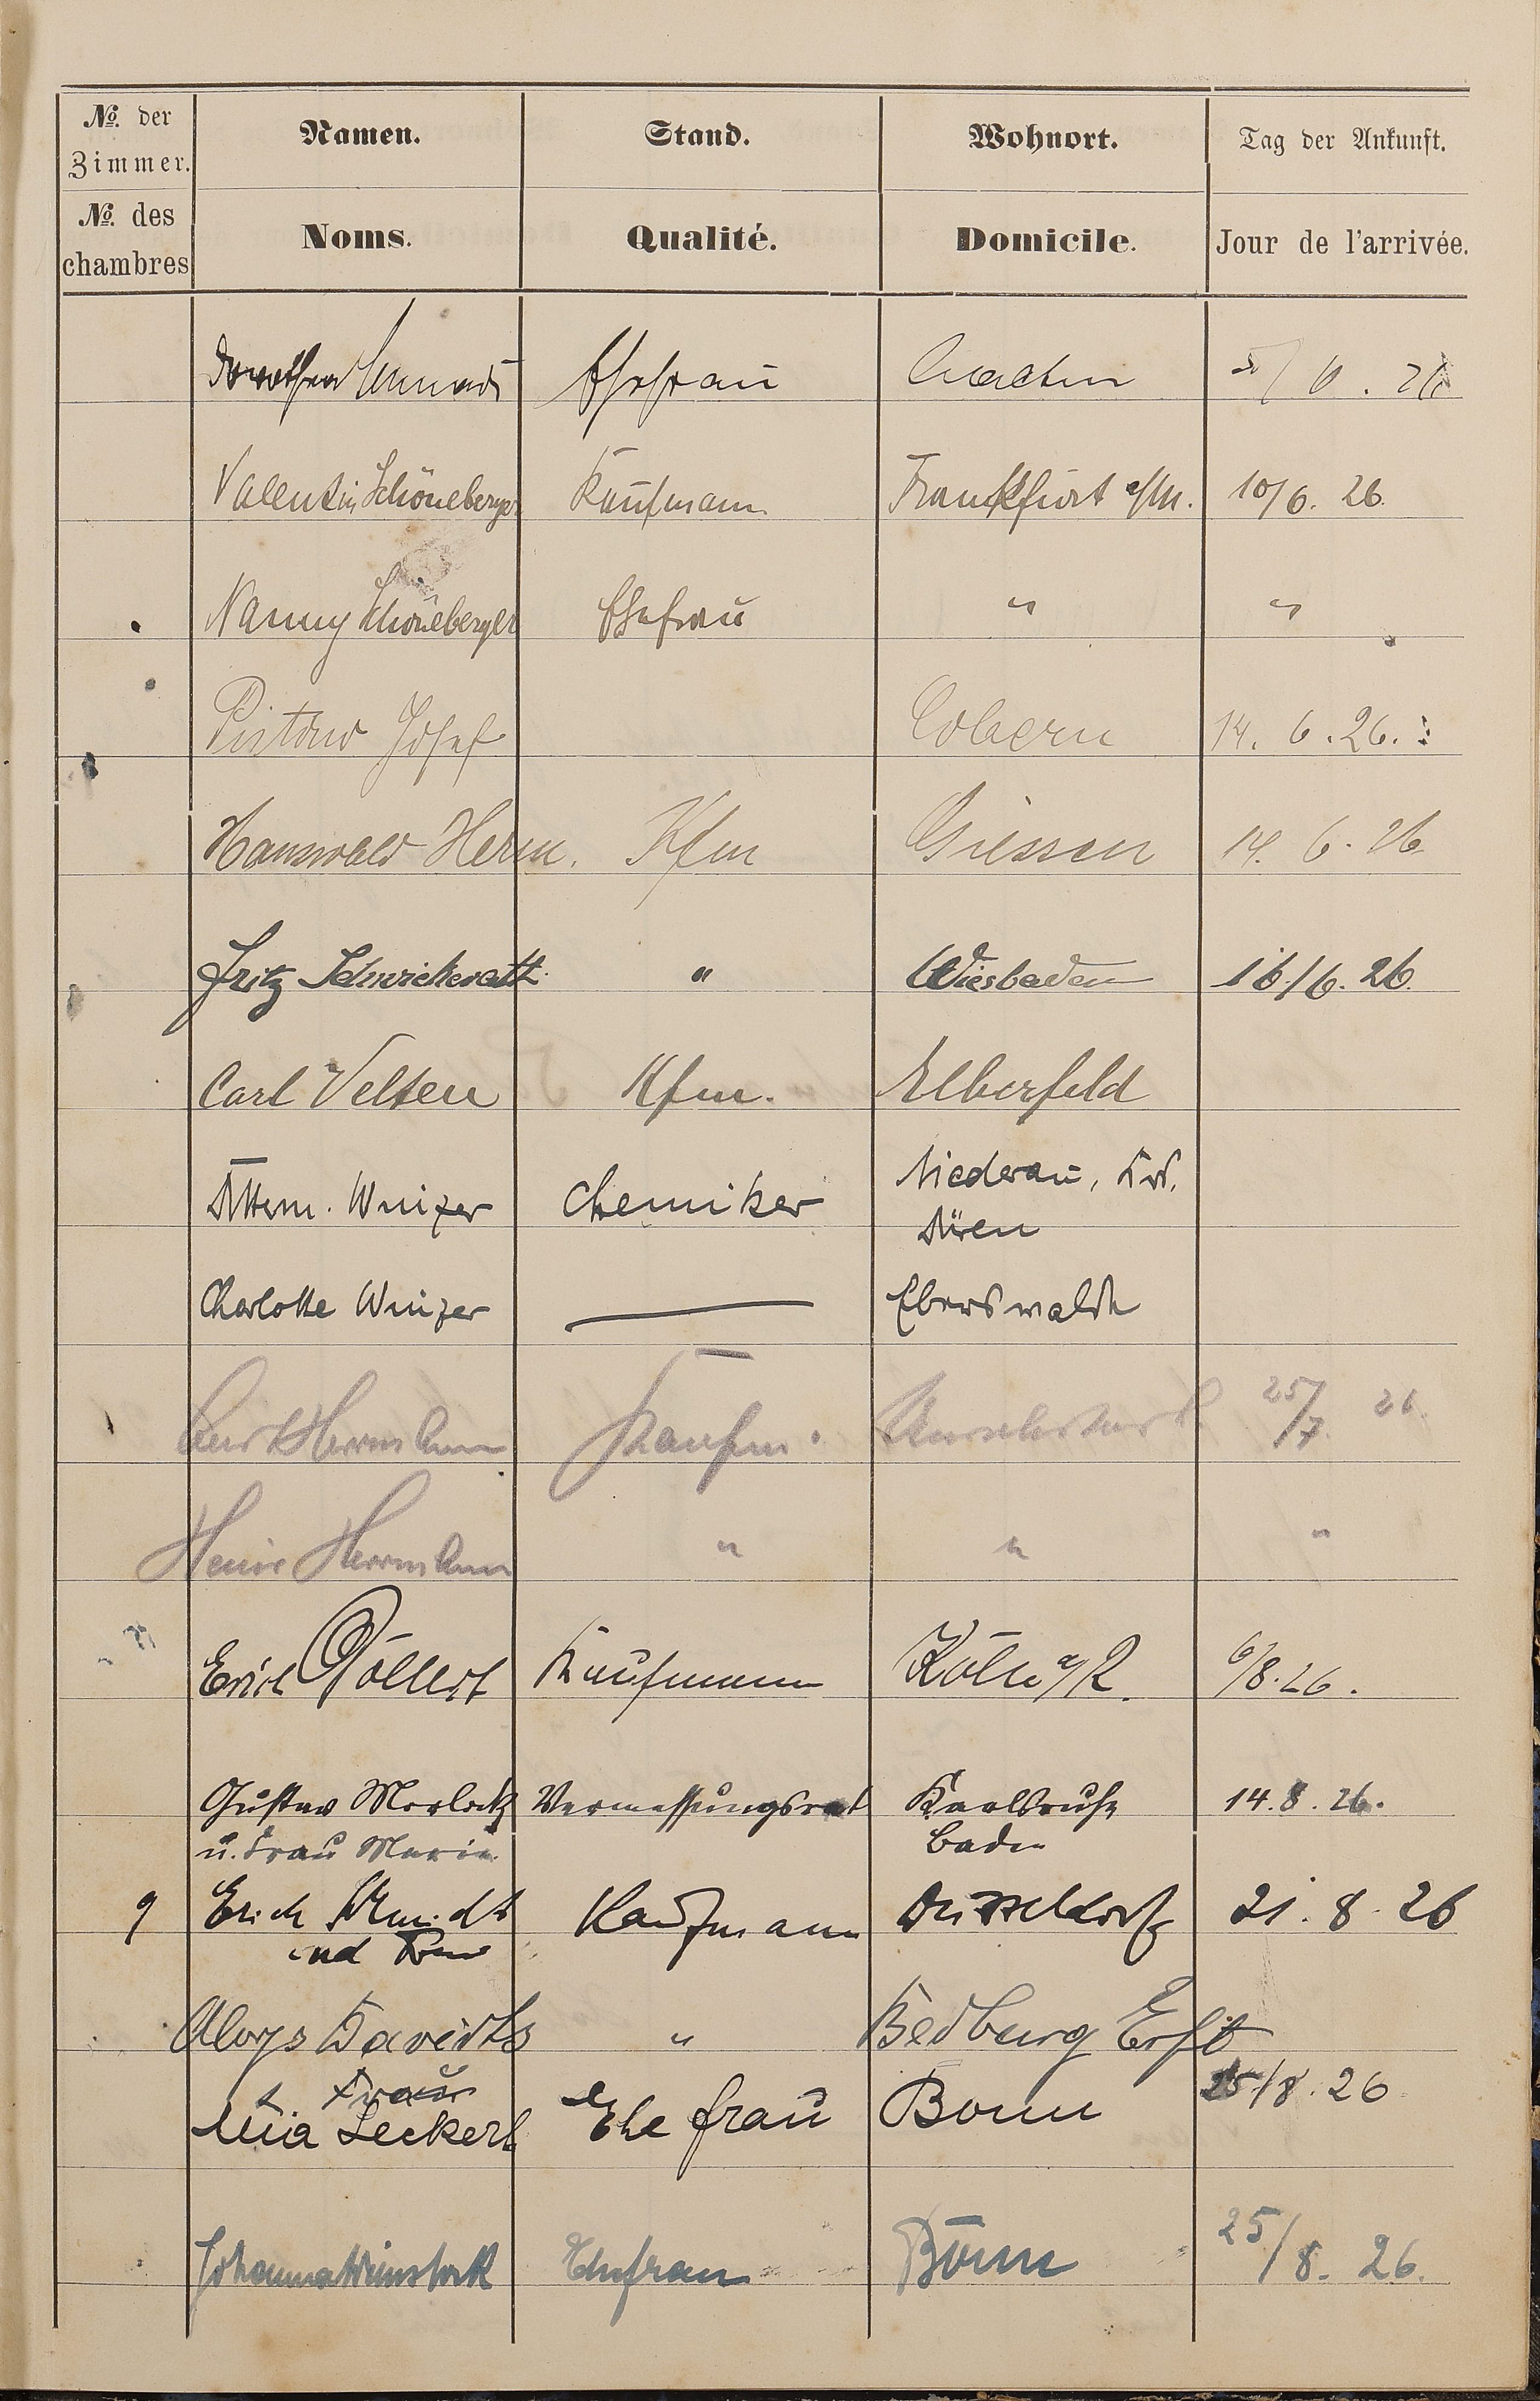 No. der Zimmer. Namen. Stand. Wohnort. Tag der Ankunft.
No. des chambres Noms. Qualité. Domicile. Jour de l'arrivée.
Dorothea Ehefrau Aachen
Valentin Schöneberger Kaufmann Frankfurt a/M. 10/6. 26.
Nanny Schöneberger Ehefrau " "
Josef Cobern 14. 6. 26.
Hanswald Herm. Kfm Giessen 14. 6. 26
Fritz Schwickerath " Wiesbaden 16/6. 26.
Carl Velten Kfm. Elberfeld
Winzer Chemiker Niederau, Krs.
Düren
Charlotte Winzer — Eberswalde
Kurt Herrmann Kaufm. 25/7 26
Herrmann " " "
Erich Göllert Kaufmann Köln a/R. 6/8. 26.
Gustav Morlock Vermessungsrat Karlsruhe 14. 8. 26.
u. Frau Maria Baden
9 Erich Schmidt Kaufmann Düsseldorf 21. 8. 26
und Frau
Aloys Davidts " Bedburg Erft
Frau
Mia Leckert Ehefrau Bonn 25/8. 26
Johanna Weinstock Ehefrau Bonn 25/8. 26.